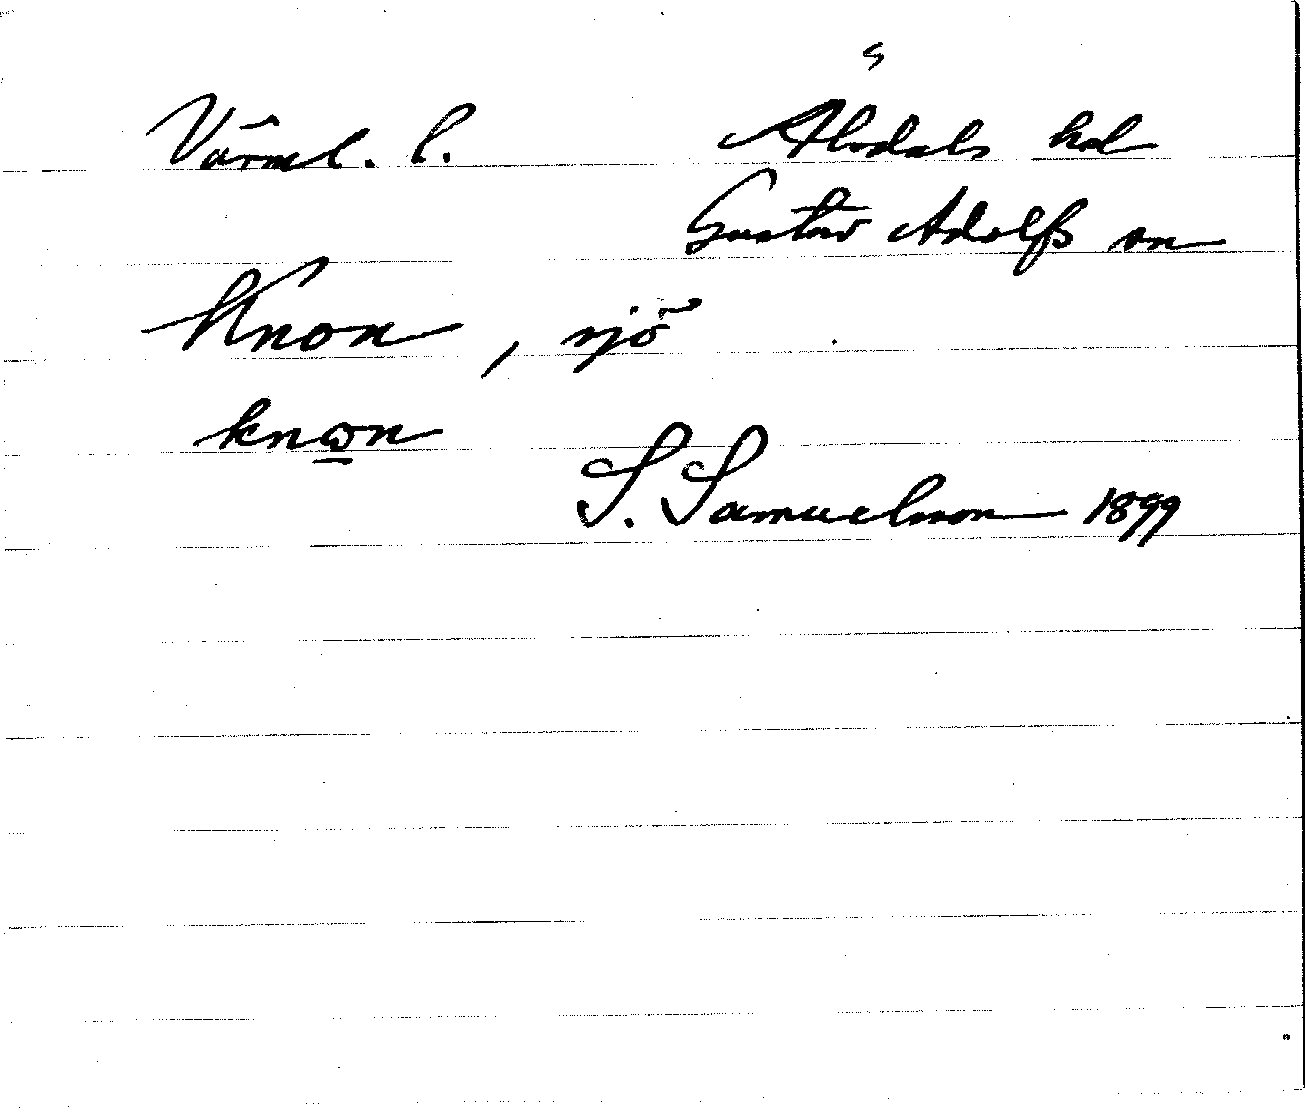 s
Värml. l. Älvdals hd
Gustav Adolfs sn
Knon, sjö
knɷn
S. Samuelsson 1899